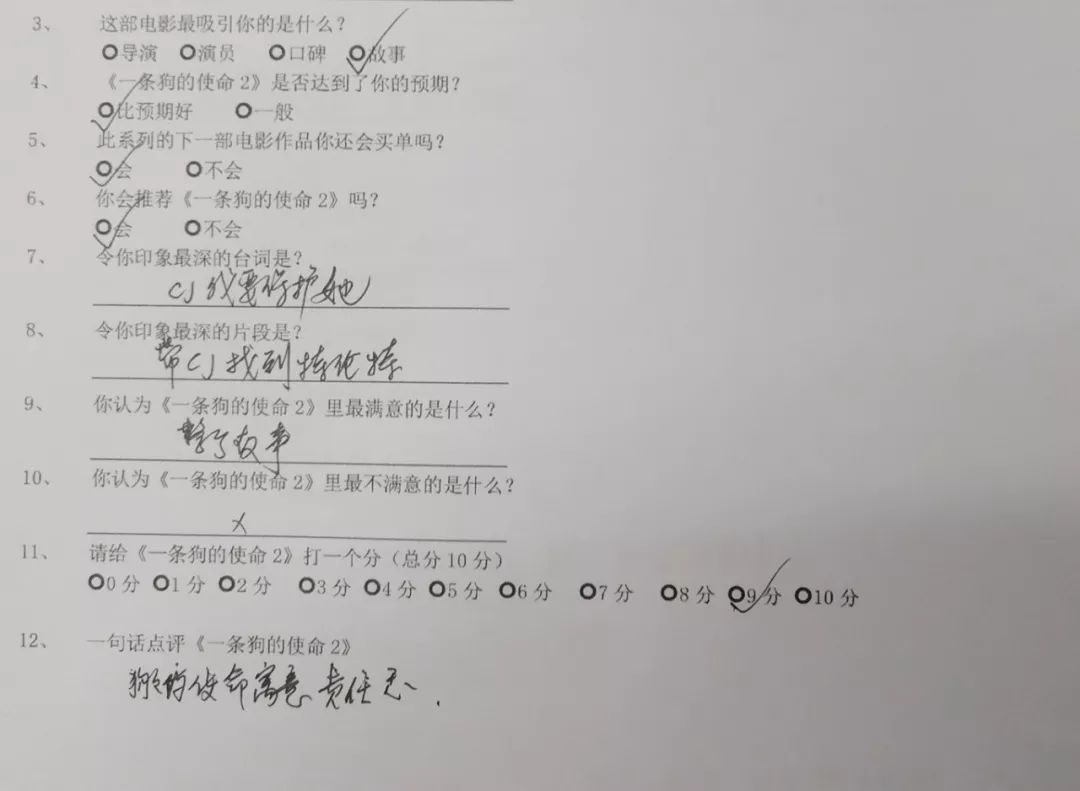 3、 这部电影最吸引你的是什么？
导演 演员 口碑 故事
4、 《一条狗的使命 2》是否达到了你的预期？
比预期好 一般
5、 此系列的下一部电影作品你还会买单吗？
会 不会
6、 你会推荐《一条狗的使命 2》吗？
会 不会
7、 令你印象最深的台词是？
CJ 我要保护她
8、 令你印象最深的片段是？
带CJ找到特伦特
9、 你认为《一条狗的使命 2》里最满意的是什么？
整个故事
10、 你认为《一条狗的使命 2》里最不满意的是什么？
x
11、 请给《一条狗的使命 2》打一个分（总分 10 分）
0 分 1 分 2 分 3 分 4 分 5 分 6 分 7 分 8 分 9 分 10 分
12、 一句话点评《一条狗的使命 2》
狗的使命寓意责任